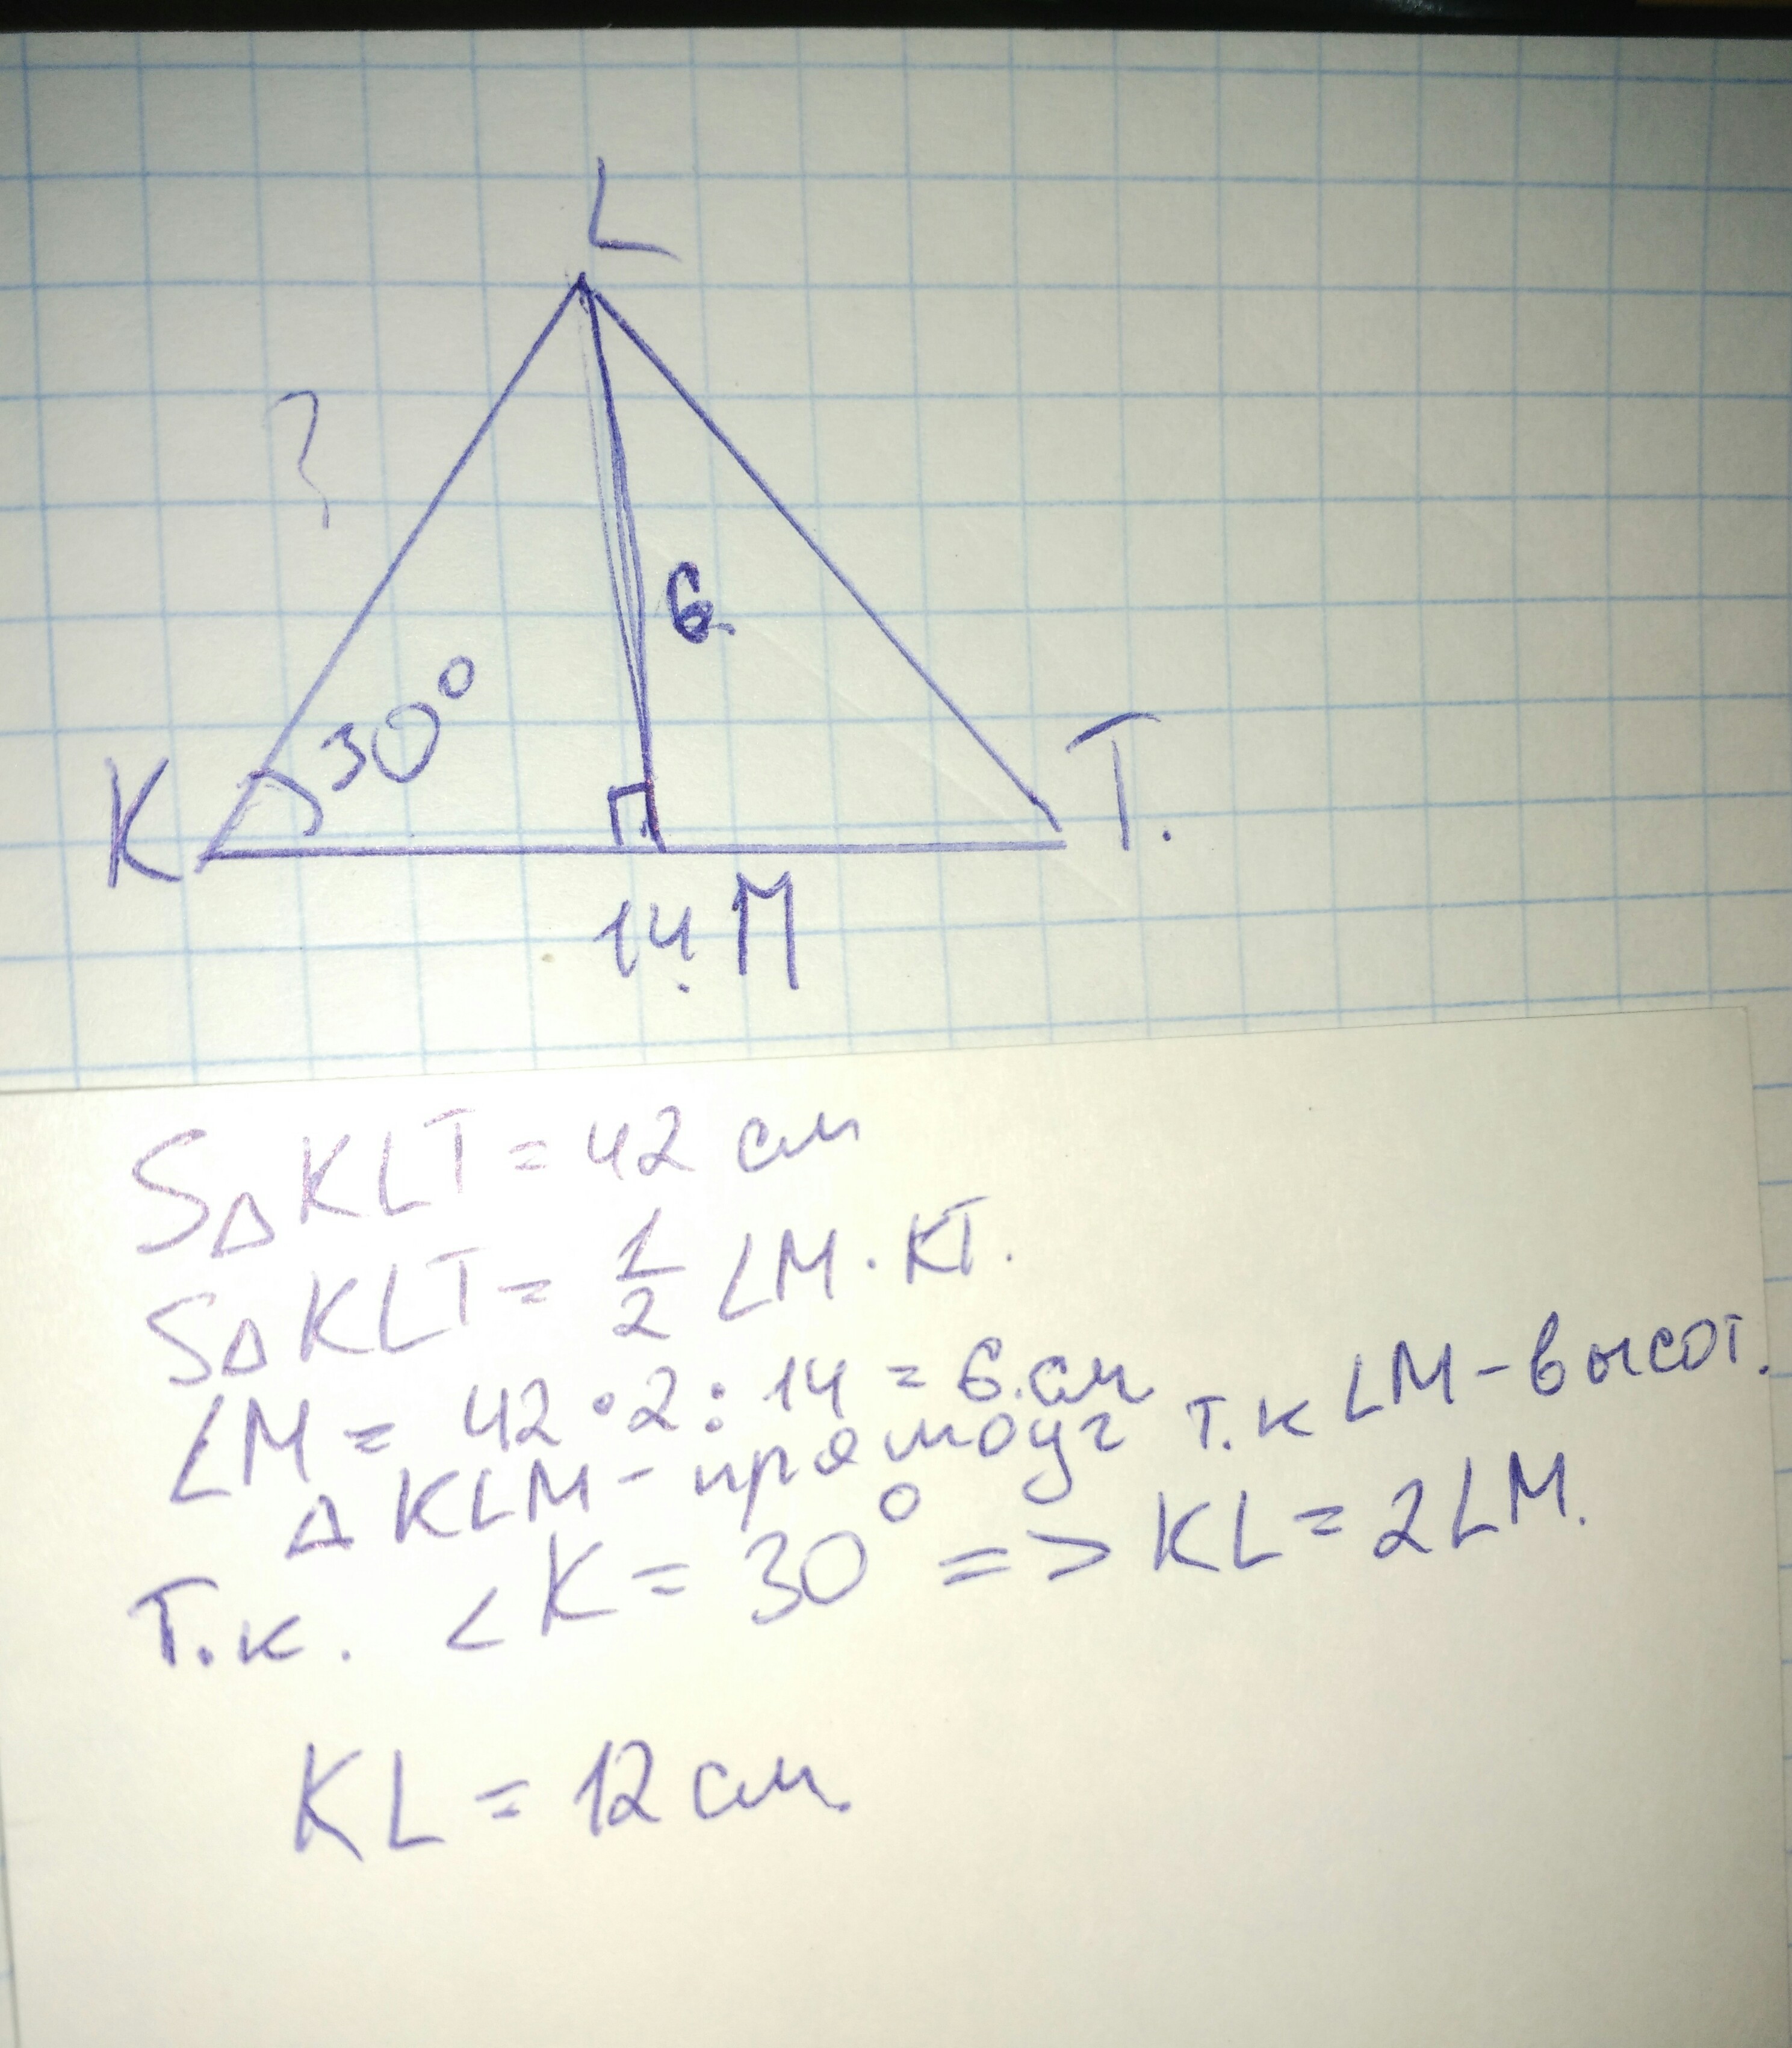 L
?
6
30°
K
T.
14. M
S△KLT = 42 см
S△KLT = 1/2 LM · KT.
LM = 42 · 2 : 14 = 6.см
△ KLM - прямоуг т.к LM - высот.
Т.к. <K = 30° => KL = 2LM.
KL = 12 см.